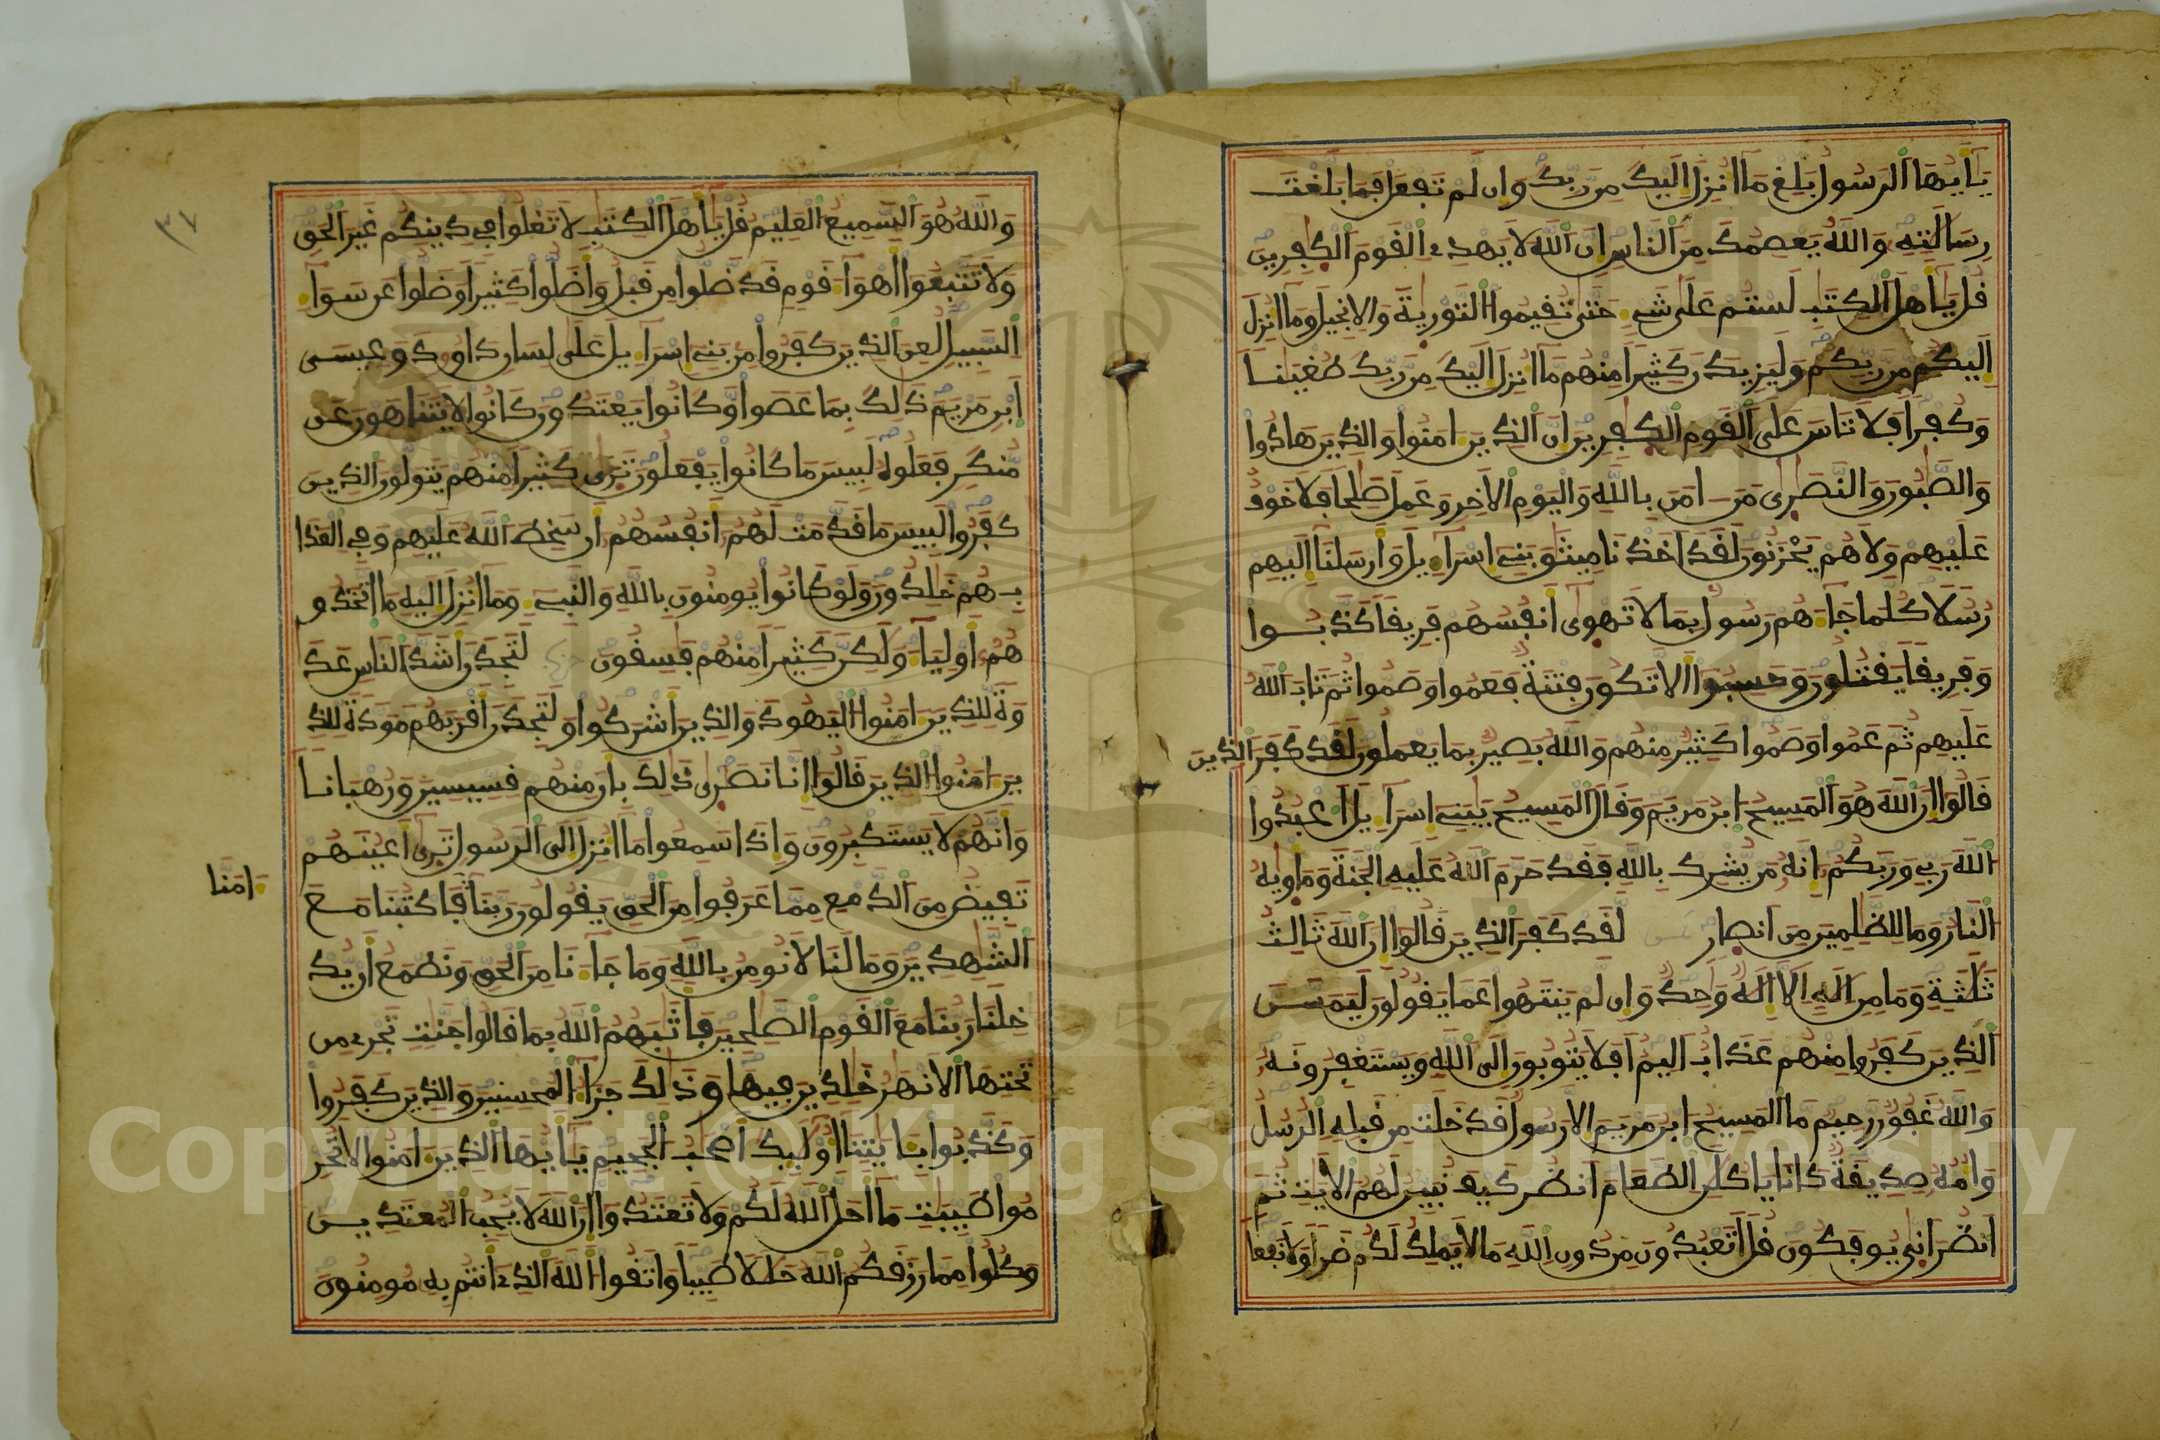 يَٰأَيُّهَا اَلرَّسُولُ بَلِّغْ مَا أُنزِلَ إِلَيْكَ مِن رَّبِّكَ وَإِن لَّمْ تَفْعَلْ فَمَا بَلَّغْتَ
رِسَالَتِهِ وَاللَّهُ يَعْصِمُكَ مِنَ اَلنَّاسِ إِنَّ اَللَّهَ لَا يَهْدِے اِلْقَوْمَ اَلْكَٰفِرِينَ
قُلْ يَٰأَهْلَ اَلْكِتَٰبِ لَسْتُمْ عَلَىٰ شَےْءٍ حَتَّىٰ تُقِيمُوا اُلتَّوْرَيٰةَ وَالِانجِيلَ وَمَا أُنزِلَ
إِلَيْكُم مِّن رَّبِّكُمْ وَلَيَزِيدَنَّ كَثِيرًا مِّنْهُم مَّا أُنزِلَ إِلَيْكَ مِن رَّبِّكَ طُغْيَٰنًا
وَكُفْرًا فَلَا تَاسَ عَلَى اَلْقَوْمِ اِلْكَٰفِرِينَ إِنَّ اَلذِينَ ءَامَنُوا وَالذِينَ هَادُوا
وَالصَّٰبُونَ وَالنَّصَٰرَىٰ مَنَ ـ امَنَ بِاللَّهِ وَالْيَوْمِ اِلَاخِرِ وَعَمِلَ صَٰلِحًا فَلَا خَوْفٌ
عَلَيْهِمْ وَلَا هُمْ يَحْزَنُونَ لَقَدَ اَخَذْنَا مِيثَٰقَ بَنِے إِسْرَآءِيلَ وَأَرْسَلْنَا إِلَيْهِمْ
رُسُلًا كُلَّمَا جَآءَهُمْ رَسُولٌ بِمَا لَا تَهْوَىٰ أَنفُسُهُمْ فَرِيقًا كَذَّبُوا
وَفَرِيقًا يَقْتُلُونَ وَحَسِبُوا أَلَّا تَكُونَ فِتْنَةٌ فَعَمُوا وَصَمُّوا ثُمَّ تَابَ اَللَّهُ
عَلَيْهِمْ ثُمَّ عَمُوا وَصَمُّوا كَثِيرٌ مِّنْهُمْ وَاللَّهُ بَصِيرٌ بِمَا يَعْمَلُونَ لَقَدْ كَفَرَ اَلذِينَ
قَالُوا إِنَّ اَللَّهَ هُوَ اَلْمَسِيحُ اُبْنُ مَرْيَمَ وَقَالَ اَلْمَسِيحُ يَٰبَنِے إِسْرَآءِيلَ اَعْبُدُوا
اُللَّهَ رَبِّے وَرَبَّكُمْ إِنَّهُ مَن يُّشْرِكْ بِاللَّهِ فَقَدْ حَرَّمَ اَللَّهُ عَلَيْهِ اِلْجَنَّةَ وَمَأْوَيٰهُ
اُلنَّارُ وَمَا لِلظَّٰلِمِينَ مِنَ اَنصَارٍ لَّقَدْ كَفَرَ اَلذِينَ قَالُوا إِنَّ اَللَّهَ ثَالِثُ
ثَلَٰثَةٍ وَمَا مِنِ اِلَٰهٍ اِلَّا إِلَٰهٌ وَٰحِدٌ وَإِن لَّمْ يَنتَهُوا عَمَّا يَقُولُونَ لَيَمَسَّنَّ
اَلذِينَ كَفَرُوا مِنْهُمْ عَذَابٌ اَلِيمٌ اَفَلَا يَتُوبُونَ إِلَى اَللَّهِ وَيَسْتَغْفِرُونَهُ
وَاللَّهُ غَفُورٌ رَّحِيمٌ مَّا اَلْمَسِيحُ اُبْنُ مَرْيَمَ إِلَّا رَسُولٌ قَدْ خَلَتْ مِن قَبْلِهِ اِلرُّسُلُ
وَأُمُّهُ صِدِّيقَةٌ كَانَا يَاكُلَٰنِ اِلطَّعَامَ اَنظُرْ كَيْفَ نُبَيِّنُ لَهُمُ اُلَايَٰتِ ثُمَّ
اَنظُرَ اَنّىٰ يُوفَكُونَ قُلَ اَتَعْبُدُونَ مِن دُونِ اِللَّهِ مَا لَا يَمْلِكُ لَكُمْ ضَرًّا وَلَا نَفْعًا
وَاللَّهُ هُوَ اَلسَّمِيعُ اُلْعَلِيمُ قُلْ يَٰأَهْلَ اَلْكِتَٰبِ لَا تَغْلُوا فِے دِينِكُمْ غَيْرَ اَلْحَقِّ
وَلَا تَتَّبِعُوا أَهْوَآءَ قَوْمٍ قَدْ ضَلُّوا مِن قَبْلُ وَأَضَلُّوا كَثِيرًا وَضَلُّوا عَن سَوَآءِ
اِلسَّبِيلِ لُعِنَ اَلذِينَ كَفَرُوا مِن بَنِے إِسْرَآءِيلَ عَلَىٰ لِسَانِ دَاوُودَ وَعِيسَى
اَبْنِ مَرْيَمَ ذَٰلِكَ بِمَا عَصَوا وَّكَانُوا يَعْتَدُونَ كَانُوا لَا يَتَنَاهَوْنَ عَن
مُّنكَرٍ فَعَلُوهُ لَبِيسَ مَا كَانُوا يَفْعَلُونَ تَرَىٰ كَثِيرًا مِّنْهُمْ يَتَوَلَّوْنَ اَلذِينَ
كَفَرُوا لَبِيسَ مَا قَدَّمَتْ لَهُمُ أَنفُسُهُمْ أَن سَخِطَ اَللَّهُ عَلَيْهِمْ وَفِے اِلْعَذَا
بِ هُمْ خَٰلِدُونَ وَلَوْ كَانُوا يُومِنُونَ بِاللَّهِ وَالنَّبِےءِ وَمَا أُنزِلَ إِلَيْهِ مَا اَتَّخَذُو
هُمُ أَوْلِيَآءَ وَلَٰكِنَّ كَثِيرًا مِّنْهُمْ فَٰسِقُونَ لَتَجِدَنَّ أَشَدَّ اَلنَّاسِ عَدَٰ
وَةً لِّلذِينَ ءَامَنُوا اُلْيَهُودَ وَالذِينَ أَشْرَكُوا وَلَتَجِدَنَّ أَقْرَبَهُم مَّوَدَّةً لِّلذِ
ينَ ءَامَنُوا اُلذِينَ قَالُوا إِنَّا نَصَٰرَىٰ ذَٰلِكَ بِأَنَّ مِنْهُمْ قِسِّيسِينَ وَرُهْبَانًا
وَأَنَّهُمْ لَا يَسْتَكْبِرُونَ وَإِذَا سَمِعُوا مَا أُنزِلَ إِلَى اَلرَّسُولِ تَرَىٰ أَعْيُنَهُمْ
تَفِيضُ مِنَ اَلدَّمْعِ مِمَّا عَرَفُوا مِنَ اَلْحَقِّ يَقُولُونَ رَبَّنَا ءَامَنَّا فَاكْتُبْنَا مَعَ
اَلشَّٰهِدِينَ وَمَا لَنَا لَا نُومِنُ بِاللَّهِ وَمَا جَآءَنَا مِنَ اَلْحَقِّ وَنَطْمَعُ أَن يُّدْ
خِلَنَا رَبُّنَا مَعَ اَلْقَوْمِ اِلصَّٰلِحِينَ فَأَثَٰبَهُمُ اُللَّهُ بِمَا قَالُوا جَنَّٰتٍ تَجْرِے مِن
تَحْتِهَا اَلَانْهَٰرُ خَٰلِدِينَ فِيهَا وَذَٰلِكَ جَزَآءُ اُلْمُحْسِنِينَ وَالذِينَ كَفَرُوا
وَكَذَّبُوا بِـَٔايَٰتِنَا أُوْلَٰئِكَ أَصْحَٰبُ اُلْجَحِيمِ يَٰأَيُّهَا اَلذِينَ ءَامَنُوا لَا تُحَرِّ
مُوا طَيِّبَٰتِ مَا أَحَلَّ اَللَّهُ لَكُمْ وَلَا تَعْتَدُوا إِنَّ اَللَّهَ لَا يُحِبُّ اُلْمُعْتَدِينَ
وَكُلُوا مِمَّا رَزَقَكُمُ اُللَّهُ حَلَٰلًا طَيِّبًا وَاتَّقُوا اُللَّهَ اَلذِے أَنتُم بِهِ مُومِنُونَ